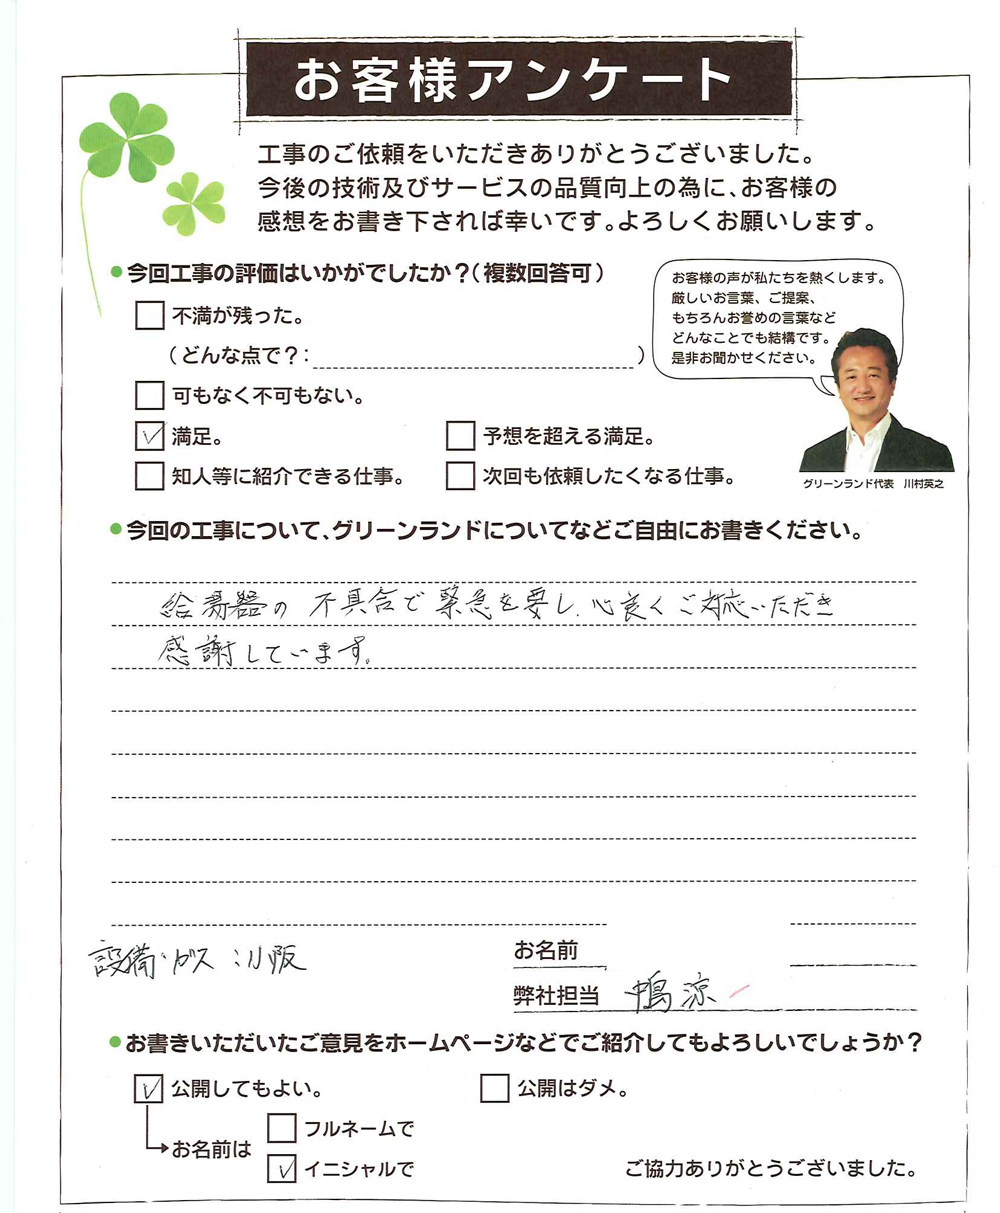 お客様アンケート
工事のご依頼をいただきありがとうございました。
今後の技術及びサービスの品質向上の為に、お客様の
感想をお書き下されば幸いです。よろしくお願いします。
●今回工事の評価はいかがでしたか？（複数回答可）
不満が残った。
（どんな点で？：　）
可もなく不可もない。
満足。
予想を超える満足。
知人等に紹介できる仕事。
次回も依頼したくなる仕事。
お客様の声が私たちを熱くします。
厳しいお言葉、ご提案、
もちろんお誉めの言葉など
どんなことでも結構です。
是非お聞かせください。
グリーンランド代表　川村英之
●今回の工事について、グリーンランドについてなどご自由にお書きください。
給湯器の不具合で緊急を要し、心良くご対応いただき
感謝しています。
設備・ガス：小阪
お名前
弊社担当　鴨涼
●お書きいただいたご意見をホームページなどでご紹介してもよろしいでしょうか？
公開してもよい。
公開はダメ。
お名前は
フルネームで
イニシャルで
ご協力ありがとうございました。